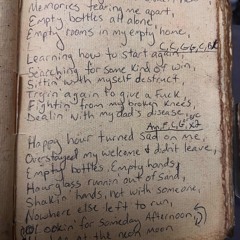 Memories tearing me apart,
Empty bottles all alone,
Empty rooms in my empty home,
C, C, G, G, C,
Learning how to start again,
Searching for some kind of win,
Sittin with myself destruct,
Tryin again to give a fuck
Fightin from my broken knees,
Dealin with my dad's disease,
Am, F, C, G
Happy hour turned sad on me,
Overstayed my welcome & didn't leave,
Empty bottles, Empty hands,
Hourglass runnin out of sand,
Shakin hands, not with someone,
Nowhere else left to run,
Lookin for someday Afternoon,
the neon moon